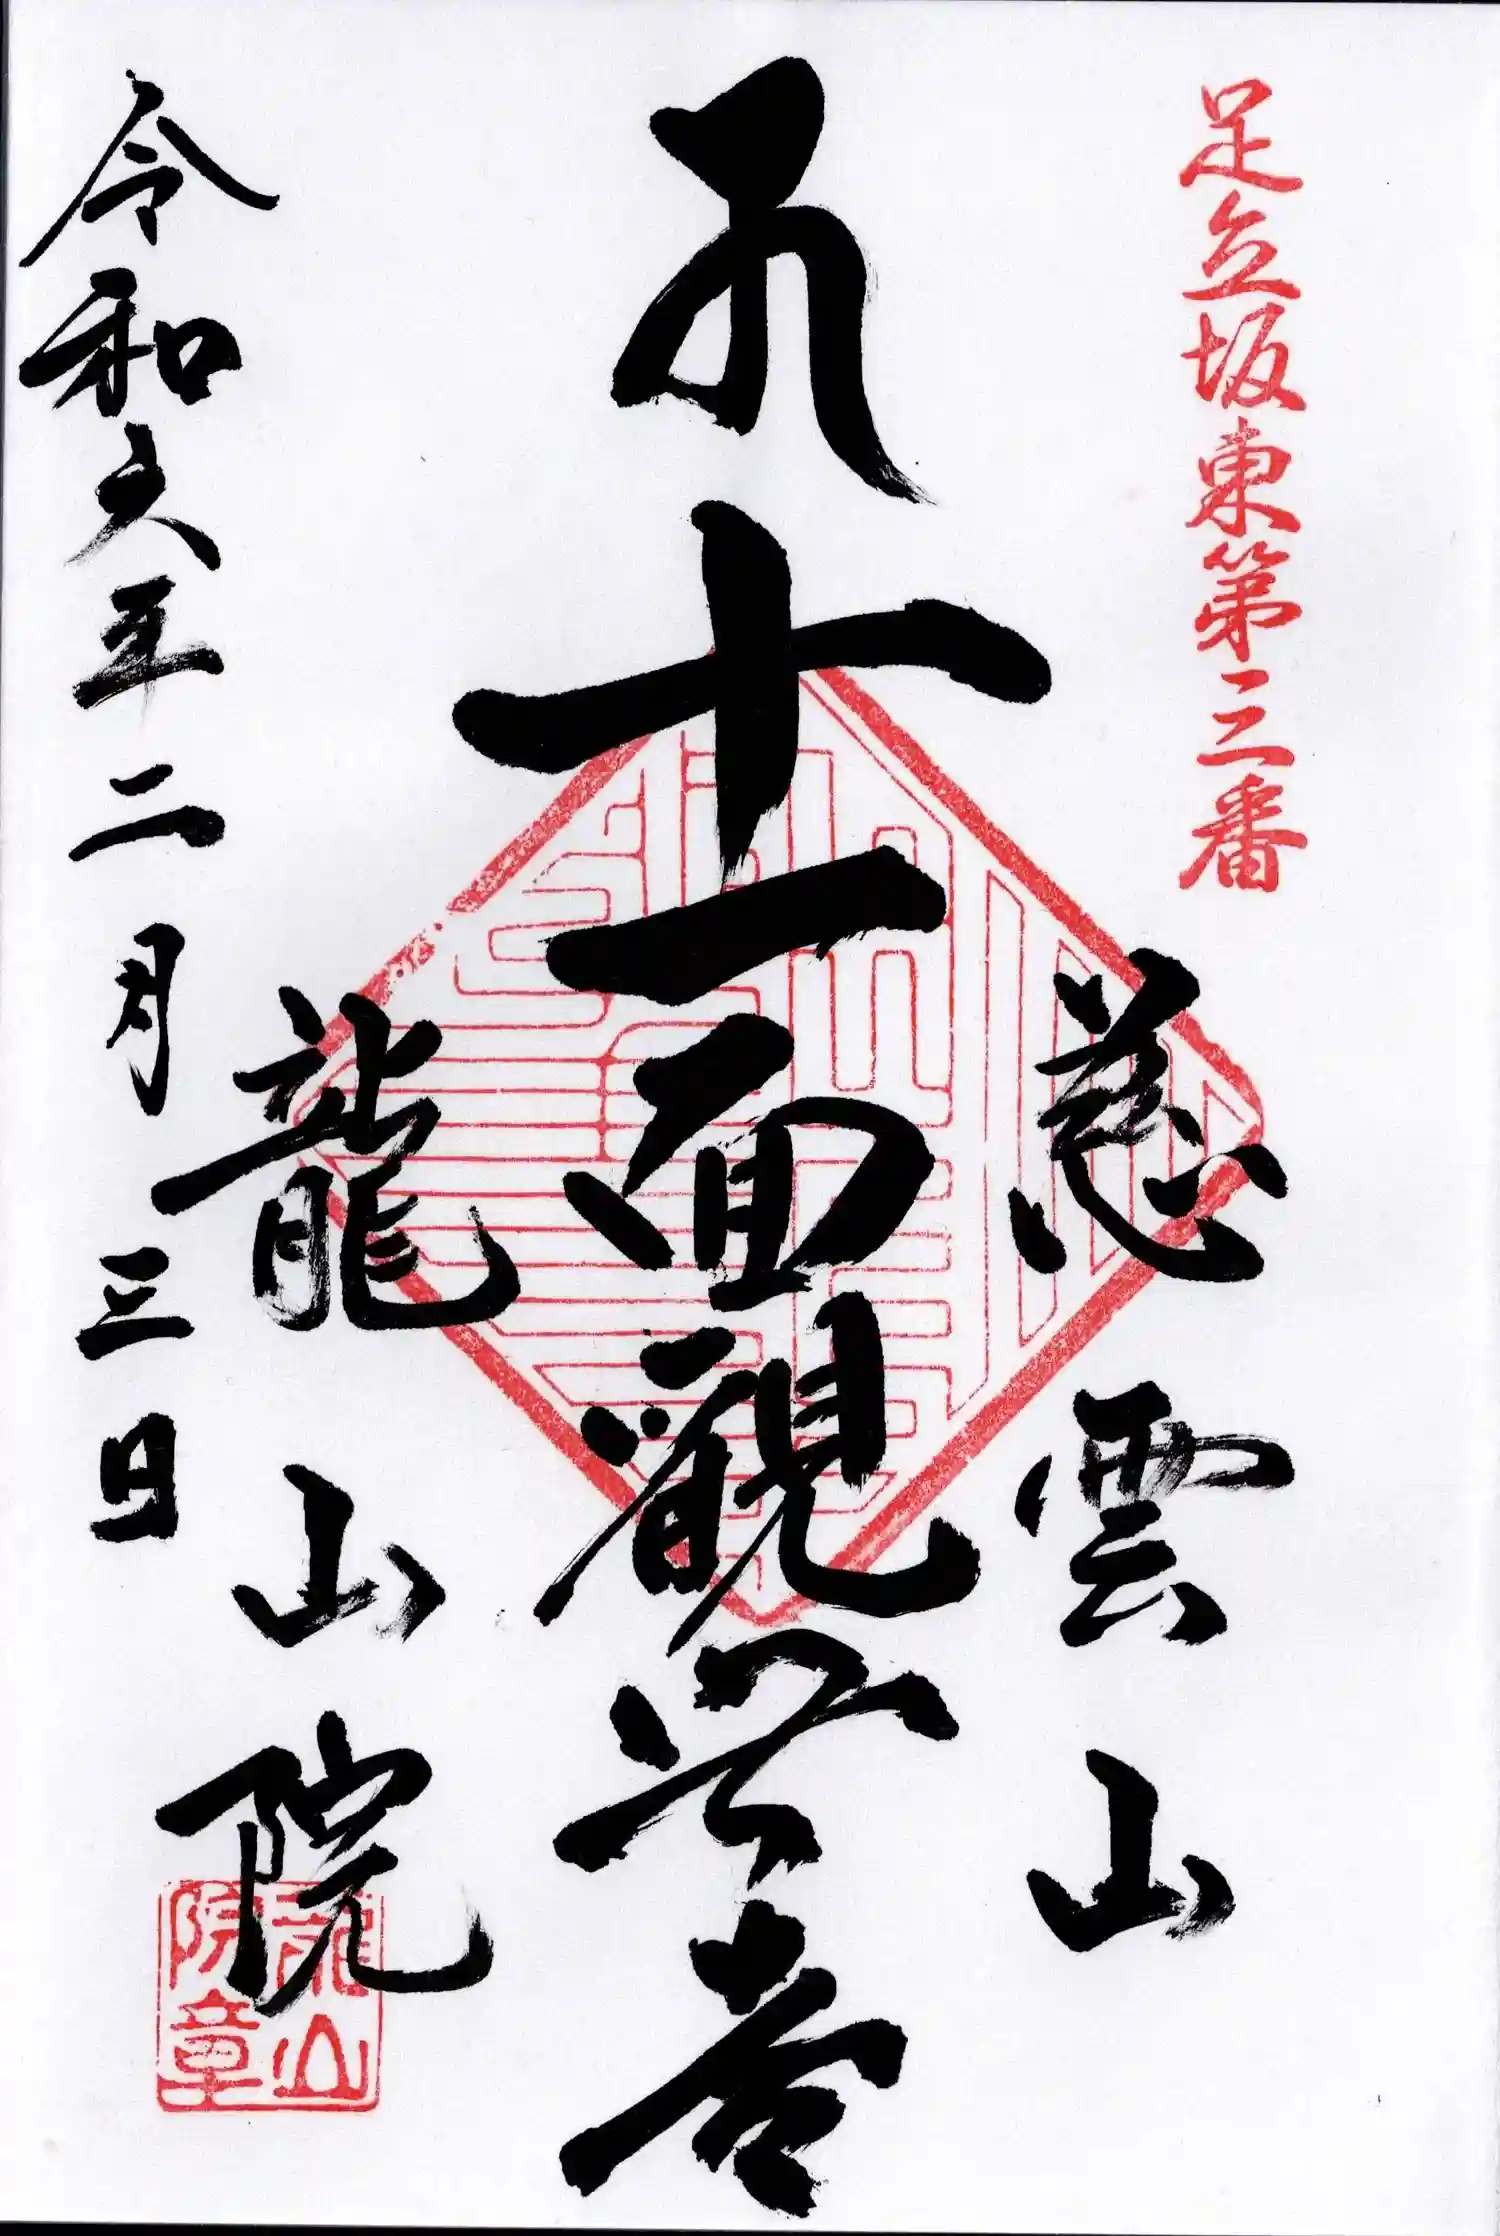 足立坂東第三番
慈雲山
十一面觀世音
龍山院
龍山
院章
令和六年二月三日